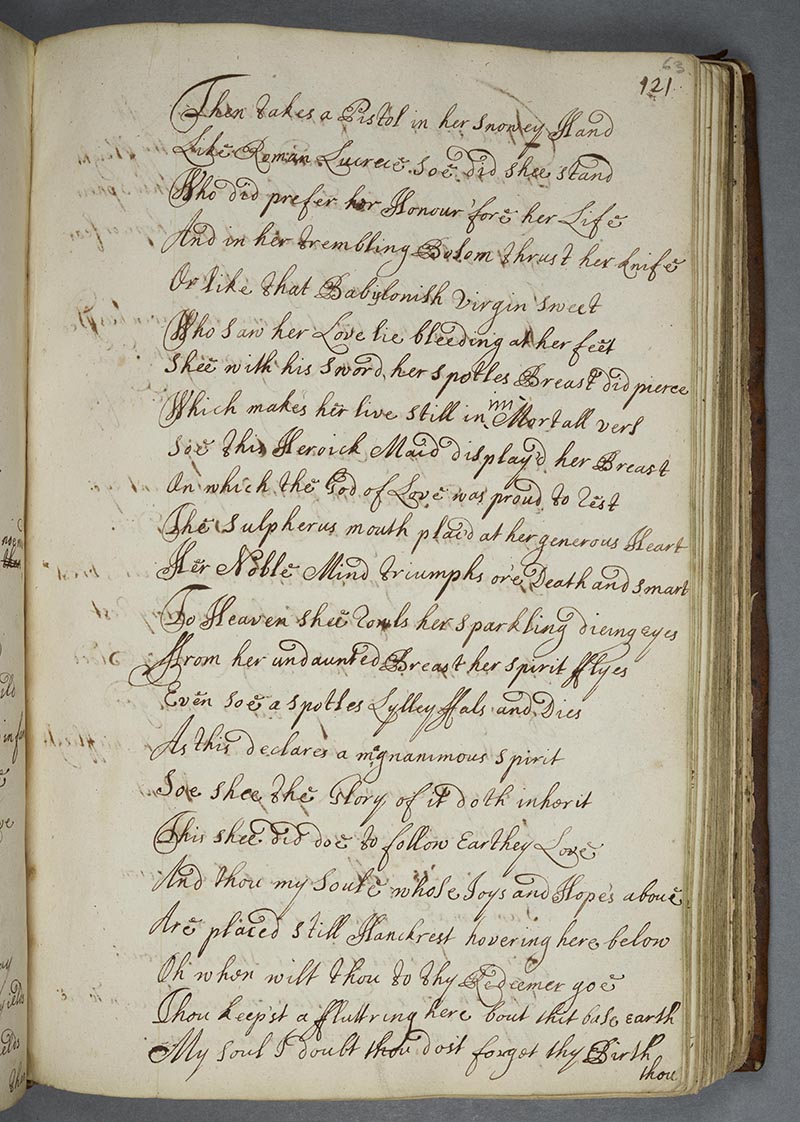 63
121
Then takes a Pistol in her snowey Hand
Like Roman Lucrece soe did shee stand
Who did prefer her Honour 'fore her Life
And in her trembling Bosom thrust her knife
Or like that Babylonish Virgin sweet
Who saw her Love lie bleeding at her feet
Shee with his sword her spotles Breast did pierce
Which makes her live still in im Mortall vers
Soe this Heroick Maid display'd her Breast
On which the God of Love was proud to rest
The sulpherus mouth plac'd at her generous Heart
Her Noble Mind triumphs o're Death and smart
To Heaven shee rowls her sparkling dieing eyes
ffrom her undaunted Breast her spirit fflyes
Even soe a spotles Lylley ffals and Dies
As this declares a magnanimous spirit
Soe shee the Glory of it doth inherit
This shee did doe to follow Earthey Love
And thou my Soule whose Joys and Hopes above
Are placed still Hanckrest hovering here below
Oh when wilt thou to thy Redeemer goe
Thou keep'st a ffluttring here bout this base earth
My soul I doubt thou dost forget thy Birth
thou